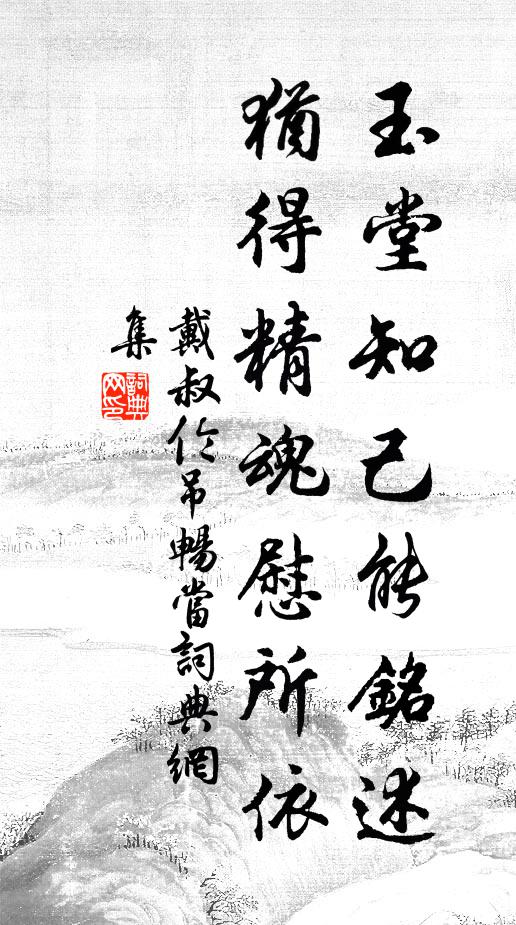 玉堂知己能銘述
猶得精魂慰所依
戴叔伦吊暢當詞典網
集
詞典网印